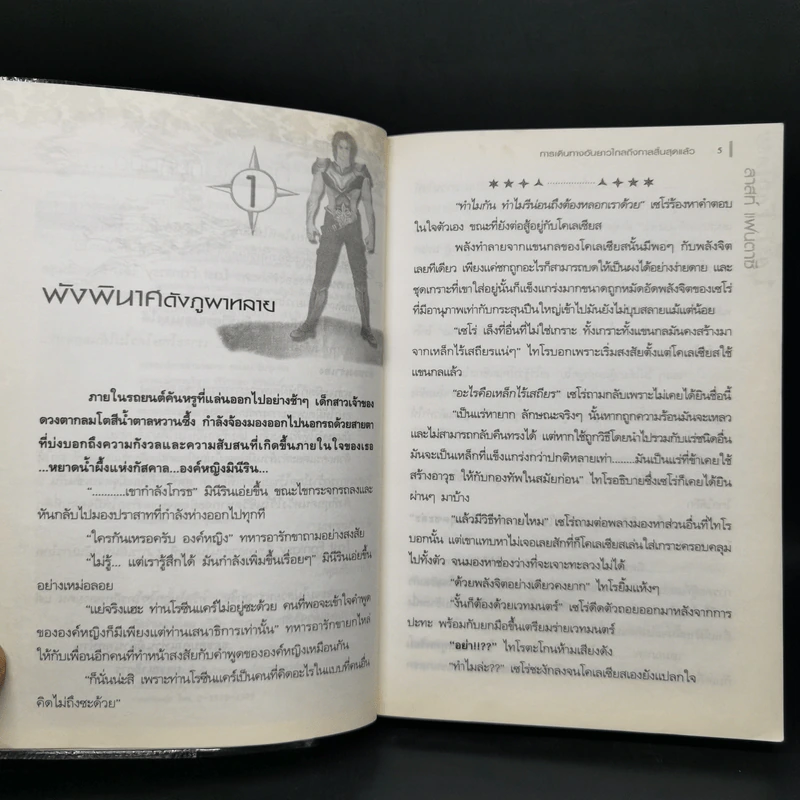 1
พังพินาศดังภูผาทลาย
ภายในรถยนต์คันหรูที่แล่นออกไปอย่างช้าๆ เด็กสาวเจ้าของ
ดวงตากลมโตสีน้ำตาลหวานซึ้ง กำลังจ้องมองออกไปนอกรถด้วยสายตา
ที่บ่งบอกถึงความกังวลและความสับสนที่เกิดขึ้นภายในใจของเธอ
...หยาดน้ำผึ้งแห่งกัสคาล...องค์หญิงมินีริน...
"..........เขากำลังโกรธ" มินีรินเอ่ยขึ้น ขณะไขกระจกรถลงและ
หันกลับไปมองปราสาทที่กำลังห่างออกไปทุกที
"ใครกันเหรอครับ องค์หญิง" ทหารอารักขาถามอย่างสงสัย
"ไม่รู้... แต่เรารู้สึกได้ มันกำลังเพิ่มขึ้นเรื่อยๆ" มินีรินเอ่ยขึ้น
อย่างเหม่อลอย
"แย่จริงแฮะ ท่านโรซีนแคร์ไม่อยู่ซะด้วย คนที่พอจะเข้าใจคำพูด
ขององค์หญิงก็มีเพียงแต่ท่านเสนาธิการเท่านั้น" ทหารอารักขายกไหล่
ให้กับเพื่อนอีกคนที่ทำหน้าสงสัยกับคำพูดขององค์หญิงเหมือนกัน
"ก็นั่นน่ะสิ เพราะท่านโรซีนแคร์เป็นคนที่คิดอะไรในแบบที่คนอื่น
คิดไม่ถึงซะด้วย"
การเดินทางอันยาวไกลถึงกาลสิ้นสุดแล้ว 5
ลาสท์ แฟนตาซี
"ทำไมกัน ทำไมรีน่อนถึงต้องหลอกเราด้วย" เซโร่ร้องหาคำตอบ
ในใจตัวเอง ขณะที่ยังต่อสู้อยู่กับโคเลเซียส
พลังทำลายจากแขนกลของโคเลเซียสนั้นมีพอๆ กับพลังจิต
เลยทีเดียว เพียงแค่ชกถูกอะไรก็สามารถบดให้เป็นผงได้อย่างง่ายดาย และ
ชุดเกราะที่เขาใส่อยู่นั้นก็แข็งแกร่งมากขนาดถูกหมัดอัดพลังจิตของเซโร่
ที่มีอานุภาพเท่ากับกระสุนปืนใหญ่เข้าไปมันยังไม่บุบสลายแม้แต่น้อย
"เซโร่ เล็งที่อื่นที่ไม่ใช่เกราะ ทั้งเกราะทั้งแขนกลมันคงสร้างมา
จากเหล็กไร้เสถียรแน่ๆ" ไทโรบอกเพราะเริ่มสงสัยตั้งแต่โคเลเซียสใช้
แขนกลแล้ว
"อะไรคือเหล็กไร้เสถียร" เซโร่ถามกลับเพราะไม่เคยได้ยินชื่อนี้
"เป็นแร่หายาก ลักษณะจริงๆ นั้นหากถูกความร้อนมันจะเหลว
และไม่สามารถกลับคืนทรงได้ แต่หากใช้ถูกวิธีโดยนำไปรวมกับแร่ชนิดอื่น
มันจะเป็นเหล็กที่แข็งแกร่งกว่าปกติหลายเท่า........มันเป็นแร่ที่ข้าเคยใช้
สร้างอาวุธ ให้กับกองทัพในสมัยก่อน" ไทโรอธิบายซึ่งเซโร่ก็เคยได้ยิน
ผ่านๆ มาบ้าง
"แล้วมีวิธีทำลายไหม" เซโร่ถามต่อพลางมองหาส่วนอื่นที่ไทโร
บอกนั้น แต่เขาแทบหาไม่เจอเลยสักที่ก็โคเลเซียสเล่นใส่เกราะครอบคลุม
ไปทั้งตัว จนมองหาช่องว่างที่จะเจาะทะลวงไม่ได้
"ด้วยพลังจิตอย่างเดียวคงยาก" ไทโรยิ้มแห้งๆ
"งั้นก็ต้องด้วยเวทมนตร์" เซโร่ดีดตัวถอยออกมาหลังจากการ
ปะทะ พร้อมกับยกมือขึ้นเตรียมร่ายเวทมนตร์
"อย่า!!??" ไทโรตะโกนห้ามเสียงดัง
"ทำไมล่ะ??" เซโร่ชะงักลงจนโคเลเซียสเองยังแปลกใจ